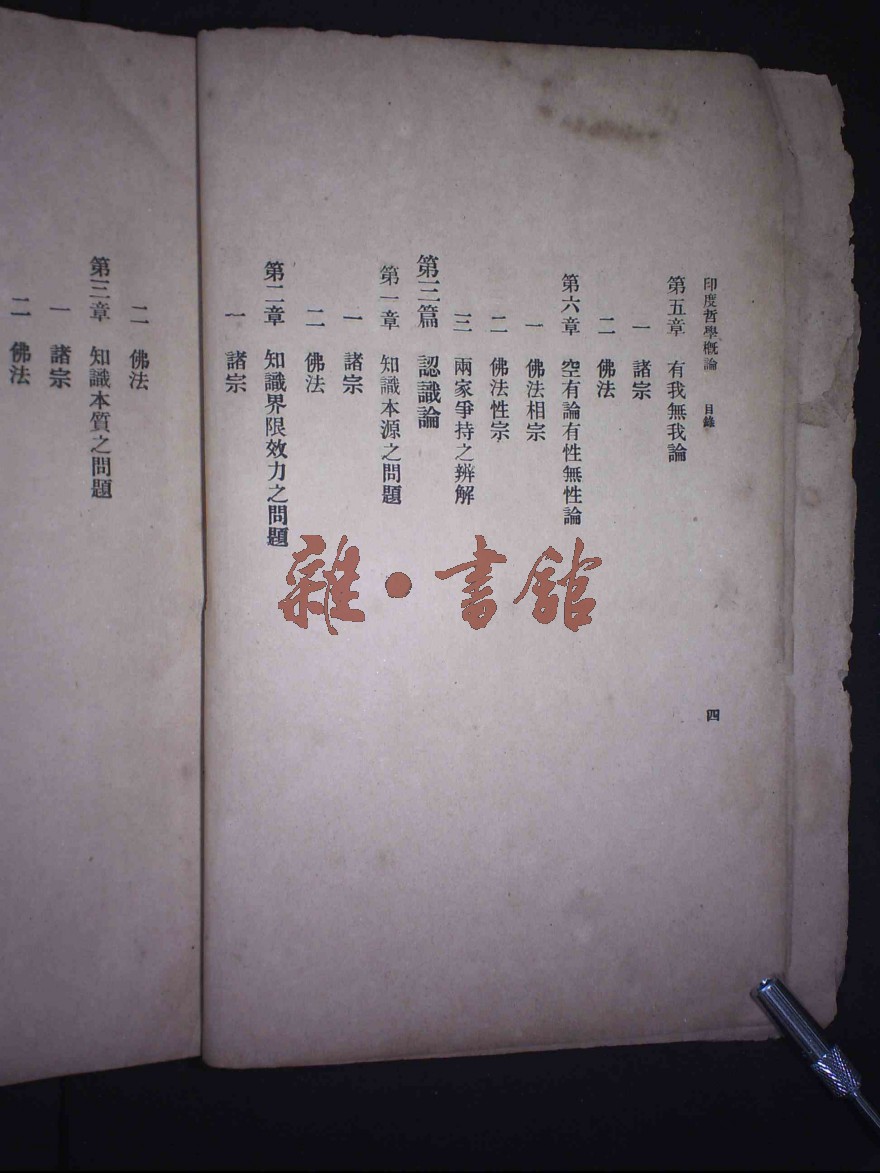 印度哲學概論 目錄
四
第五章 有我無我論
一 諸宗
二 佛法
第六章 空有論有性無性論
一 佛法相宗
二 佛法性宗
三 兩家爭持之辨解
第三篇 認識論
第一章 知識本源之問題
一 諸宗
二 佛法
第二章 知識界限效力之問題
一 諸宗
二 佛法
第三章 知識本質之問題
一 諸宗
二 佛法
雜·書館